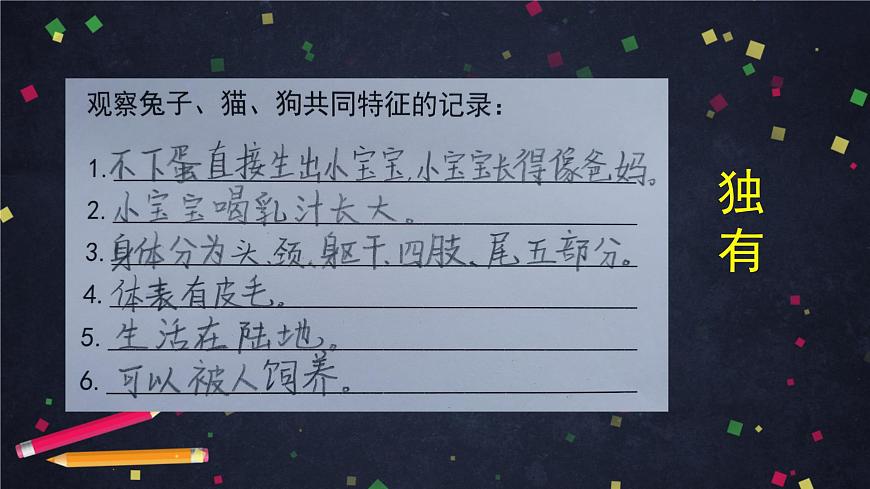 观察兔子、猫、狗共同特征的记录：
1.不下蛋直接生出小宝宝,小宝宝长得像爸妈。
2.小宝宝喝乳汁长大。
3.身体分为头、颈、躯干、四肢、尾五部分。
4.体表有皮毛。
5.生活在陆地。
6.可以被人饲养。
独有